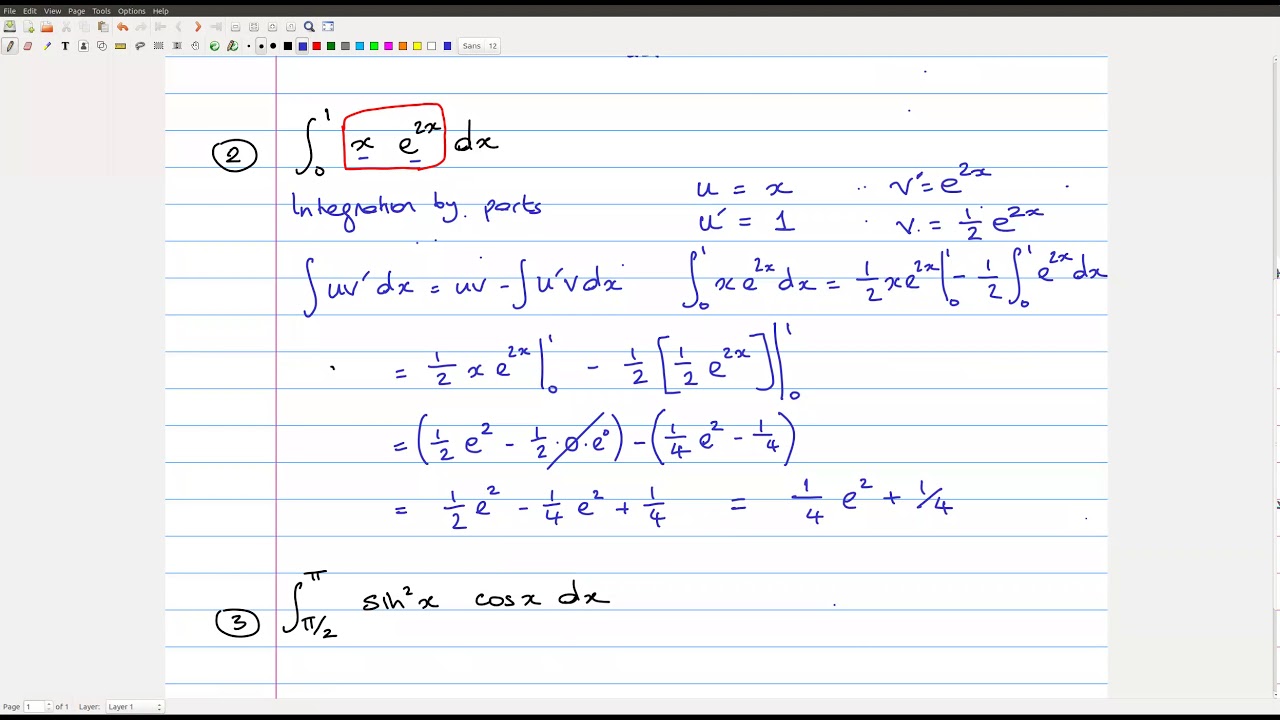 File Edit View Page Tools Options Help
Sans 12
② ∫₀¹ x e^{2x} dx
Integration by parts
u = x v' = e^{2x}
u' = 1 v = 1/2 e^{2x}
∫ uv' dx = uv - ∫ u'v dx ∫₀¹ x e^{2x} dx = 1/2 x e^{2x} |₀¹ - 1/2 ∫₀¹ e^{2x} dx
= 1/2 x e^{2x} |₀¹ - 1/2 [1/2 e^{2x}] |₀¹
= (1/2 e² - 1/2 · 0 · e⁰) - (1/4 e² - 1/4)
= 1/2 e² - 1/4 e² + 1/4 = 1/4 e² + 1/4
③ ∫_{π/2}^{π} sin²x cosx dx
Page 1 of 1 Layer: Layer 1